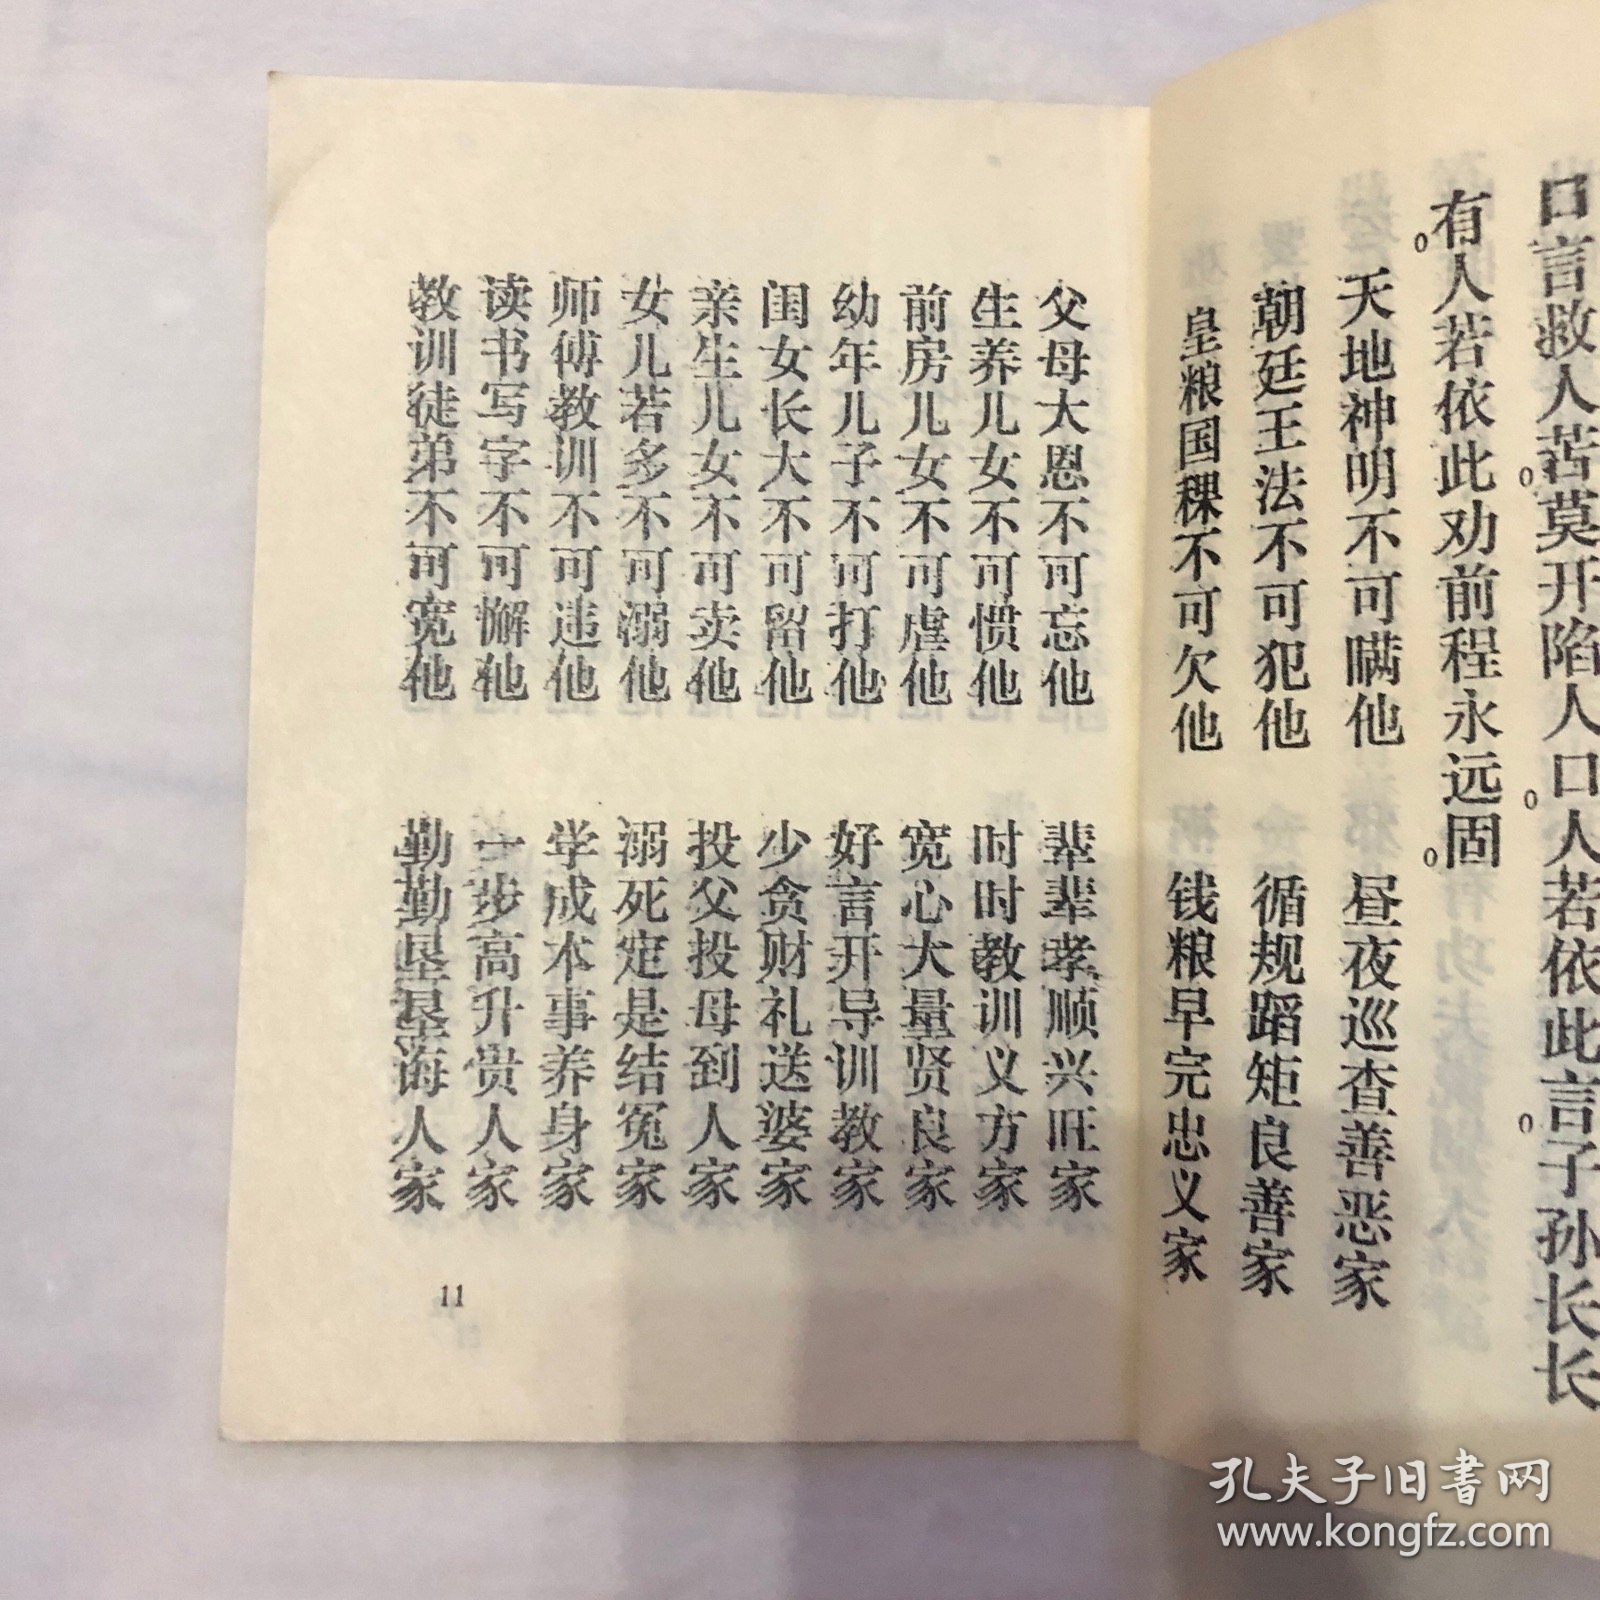 口言救人苦。莫开陷人口。人若依此言。子孙长长
有。人若依此劝前程永远固。
天地神明不可瞒他 昼夜巡查善恶家
朝廷王法不可犯他 循规蹈矩良善家
皇粮国稞不可欠他 钱粮早完忠义家
父母大恩不可忘他 辈辈孝顺兴旺家
生养儿女不可惯他 时时教训义方家
前房儿女不可虐他 宽心大量贤良家
幼年儿子不可打他 好言开导训教家
闺女长大不可留他 少贪财礼送婆家
亲生儿女不可卖他 投父投母到人家
女儿若多不可溺他 溺死定是结冤家
师傅教训不可违他 学成本事养身家
读书写字不可懈他 一步高升贵人家
教训徒弟不可宽他 勤勤垦垦诲人家
11
孔夫子旧书网
www.kongfz.com